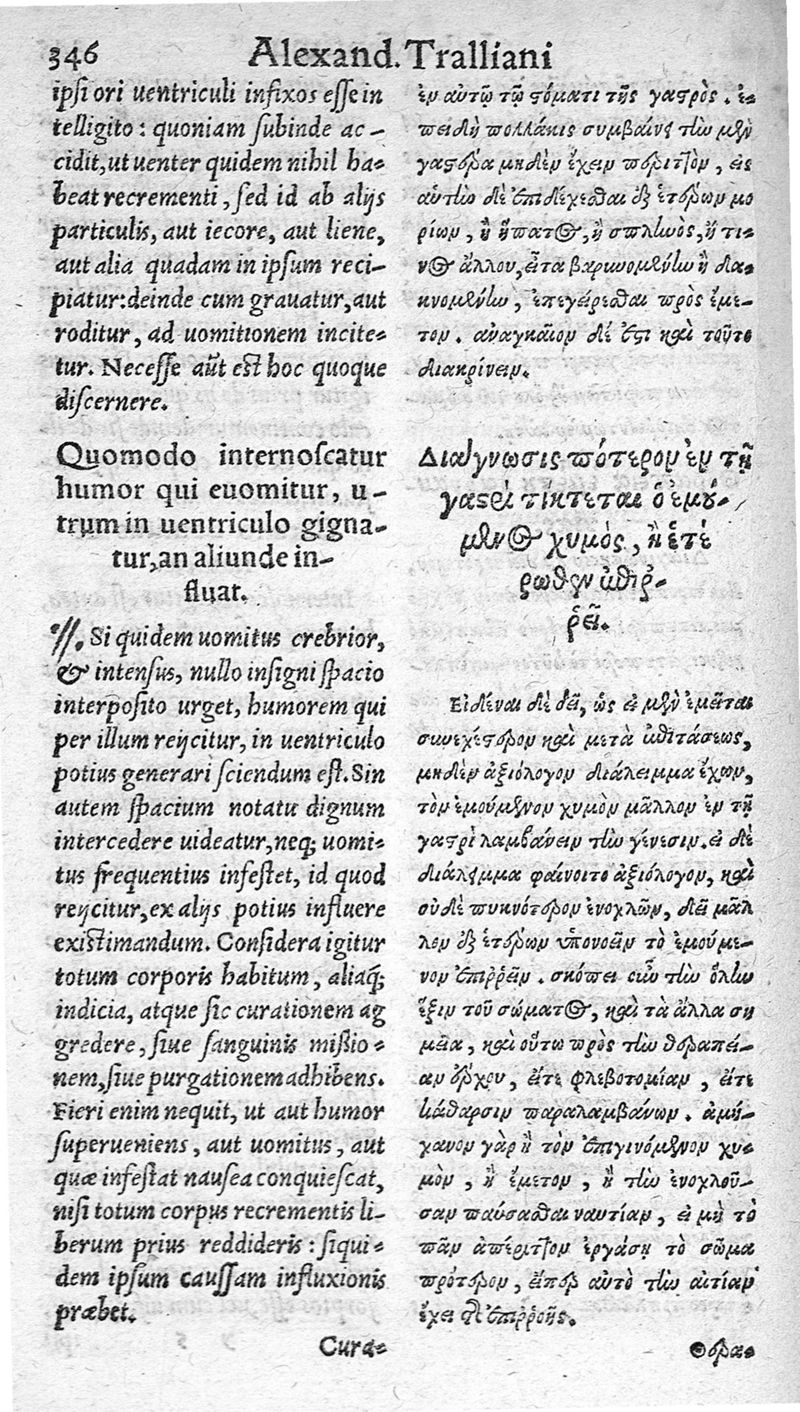 346 Alexand. Tralliani
ipsi ori uentriculi infixos esse in
telligito: quoniam subinde ac-
cidit, ut uenter quidem nihil ha-
beat recrementi, sed id ab alijs
particulis, aut iecore, aut liene,
aut alia quadam in ipsum reci-
piatur: deinde cum grauatur, aut
roditur, ad uomitionem incite-
tur. Necesse aũt est hoc quoque
discernere.
Quomodo internoscatur
humor qui euomitur, u-
trum in uentriculo gigna-
tur, an aliunde in-
fluat.
Si quidem uomitus crebrior,
& intensus, nullo insigni spacio
interposito urget, humorem qui
per illum reijcitur, in uentriculo
potius generari sciendum est. Sin
autem spacium notatu dignum
intercedere uideatur, neq; uomi-
tus frequentius infestet, id quod
reijcitur, ex alijs potius influere
existimandum. Considera igitur
totum corporis habitum, aliaq́;
indicia, atque sic curationem ag
gredere, siue sanguinis missio-
nem, siue purgationem adhibens.
Fieri enim nequit, ut aut humor
superueniens, aut uomitus, aut
quæ infestat nausea conquiescat,
nisi totum corpus recrementis li-
berum prius reddideris: siqui-
dem ipsum caussam influxionis
præbet.
Cura-
ἐν αὐτῷ τῷ στόματι τῆς γαστρὸς. ἐ-
πειδὴ πολλάκις συμβαίνει τὴν μὲν
γαστέρα μηδὲν ἔχειν περιττὸν, εἰς
αὐτὴν δὲ ἐπιδέχεσθαι ἐξ ἑτέρων μο
ρίων, ἢ ἥπατος, ἢ σπληνὸς, ἤ τι-
νος ἄλλου, εἶτα βαρυνομένην ἢ δα-
κνομένην, ἐπεγείρεσθαι πρὸς ἔμε-
τον. ἀναγκαῖον δέ ἐστι καὶ τοῦτο
διακρίνειν.
Διάγνωσις πότερον ἐν τῇ
γαστρὶ τίκτεται ὁ ἐμού-
μενος χυμὸς, ἢ ἑτέ
ρωθεν ἐπιῤ-
ῥεῖ.
Εἰδέναι δὲ δεῖ, ὡς εἰ μὲν ἐμεῖται
συνεχέστερον καὶ μετὰ ἐπιτάσεως,
μηδὲν ἀξιόλογον διάλειμμα ἔχων,
τὸν ἐμούμενον χυμὸν μᾶλλον ἐν τῇ
γαστρὶ λαμβάνειν τὴν γένεσιν. εἰ δὲ
διάλειμμα φαίνοιτο ἀξιόλογον, καὶ
οὐδὲ πυκνότερον ἐνοχλῶν, δεῖ μᾶλ
λον ἐξ ἑτέρων ὑπονοεῖν τὸ ἐμούμε-
νον ἐπιῤῥεῖν. σκόπει οὖν τὴν ὅλην
ἕξιν τοῦ σώματος, καὶ τὰ ἄλλα ση
μεῖα, καὶ οὕτω πρὸς τὴν θεραπεί-
αν ἔρχου, εἴτε φλεβοτομίαν, εἴτε
κάθαρσιν παραλαμβάνων. ἀμή-
χανον γὰρ ἢ τὸν ἐπιγινόμενον χυ-
μὸν, ἢ ἔμετον, ἢ τὴν ἐνοχλοῦ-
σαν παύσασθαι ναυτίαν, εἰ μὴ τὸ
πᾶν ἀπέριττον ἐργάσῃ τὸ σῶμα
πρότερον, εἴπερ αὐτὸ τὴν αἰτίαν
ἔχει τῆς ἐπιῤῥοῆς.
Θερα-